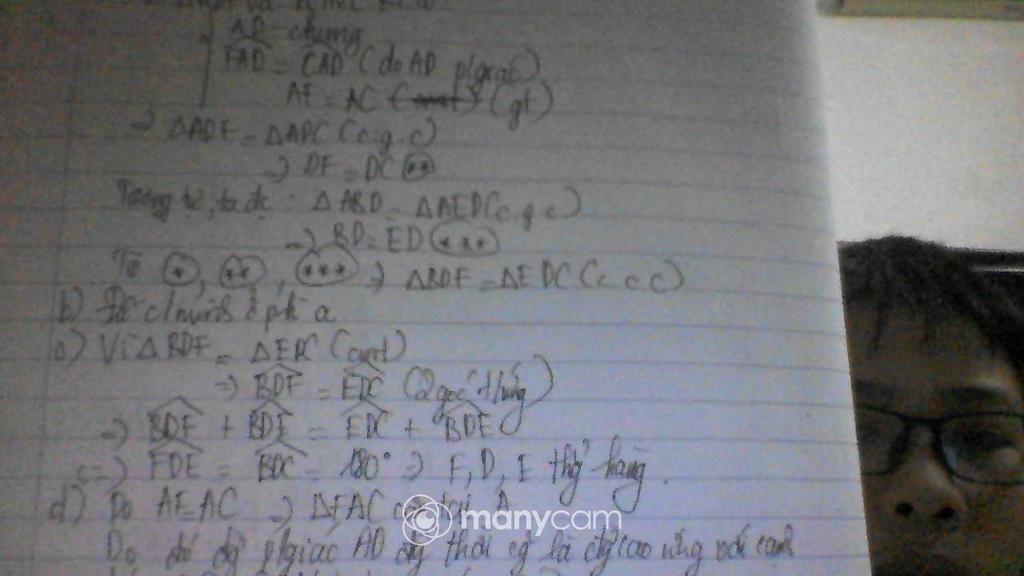 AD chung
FAD = CAD (do AD p/giác)
AF = AC (gt)
=> ΔADF = ΔADC (c.g.c)
=> DF = DC (**)
Tương tự, ta đc : ΔABD = ΔAED (c.g.c)
=> BD = ED (***)
Từ (*), (**), (***) => ΔBDF = ΔEDC (c c c)
b) Đã c/minh ở phần a
c) Vì ΔBDF = ΔEDC (cmt)
=> BDF = EDC (2 góc t/ứng)
=> BDF + BDE = EDC + BDE
<=> FDE = BDC = 180° => F, D, E thg hàng.
d) Do AF = AC => ΔFAC tại A
Do đó p/giác AD đồng thời là đg cao ứng với cạnh
manycam